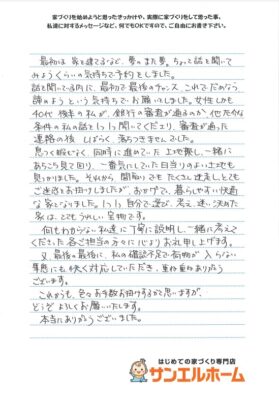 家づくりを始めようと思ったきっかけや、実際に家づくりをして思った事、
私達に対するメッセージなど、何でもOKですので、ご自由にお書き下さい。
最初は家を建てるなど、夢のまた夢。ちょっと話を聞いて
みようくらいの気持ちで予約をしました。
話を聞いている内に、最初で最後のチャンス、これでだめなら
諦めようという気持ちでお願いしました。女性しかも
40代後半の私が、銀行の審査が通るのか、他色々な
条件の私の話を1つ1つ聞いてくださり、審査が通った
連絡の後、しばらく落ちつきませんでした。
思った暇もなく、同時に進めていた土地探し、一緒に
あちこち見て回り、一番気にしていた日当りのよい土地も
見つかりました。それから間取りでもたくさん迷走しとても
ご迷惑をお掛けしましたが、おかげで、暮らしやすい快適
な家となりました。1つ1つ自分で選び、考え、迷い決めた
家は、とてもうれしい宝物です。
何もわからない私達に丁寧に説明し、一緒に考えて
くださった各ご担当の方々に心よりお礼申し上げます。
又、最後の最後に、私の確認不足で荷物が入らない
事態にも快く対応していただき、重ね重ねありがとう
ございます。
これからも、色々お手数お掛けすると思いますが、
どうぞよろしくお願いいたします。
本当にありがとうございました。
はじめての家づくり専門店
サンエルホーム